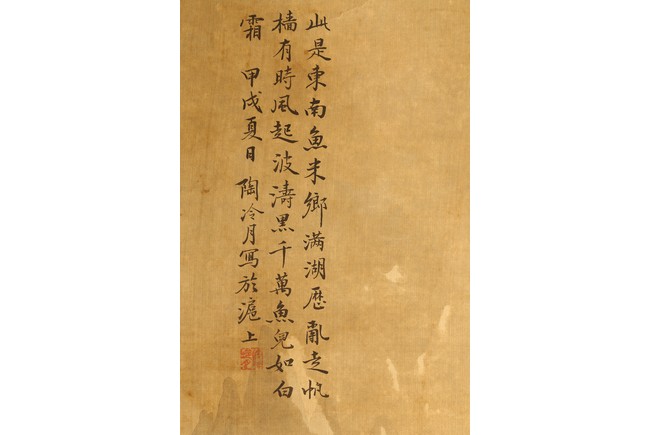 此是東南魚米鄉滿湖歷亂走帆
檣有時風起波濤黑千萬魚兒如白
霜 甲戌夏日陶冷月寫於滬上